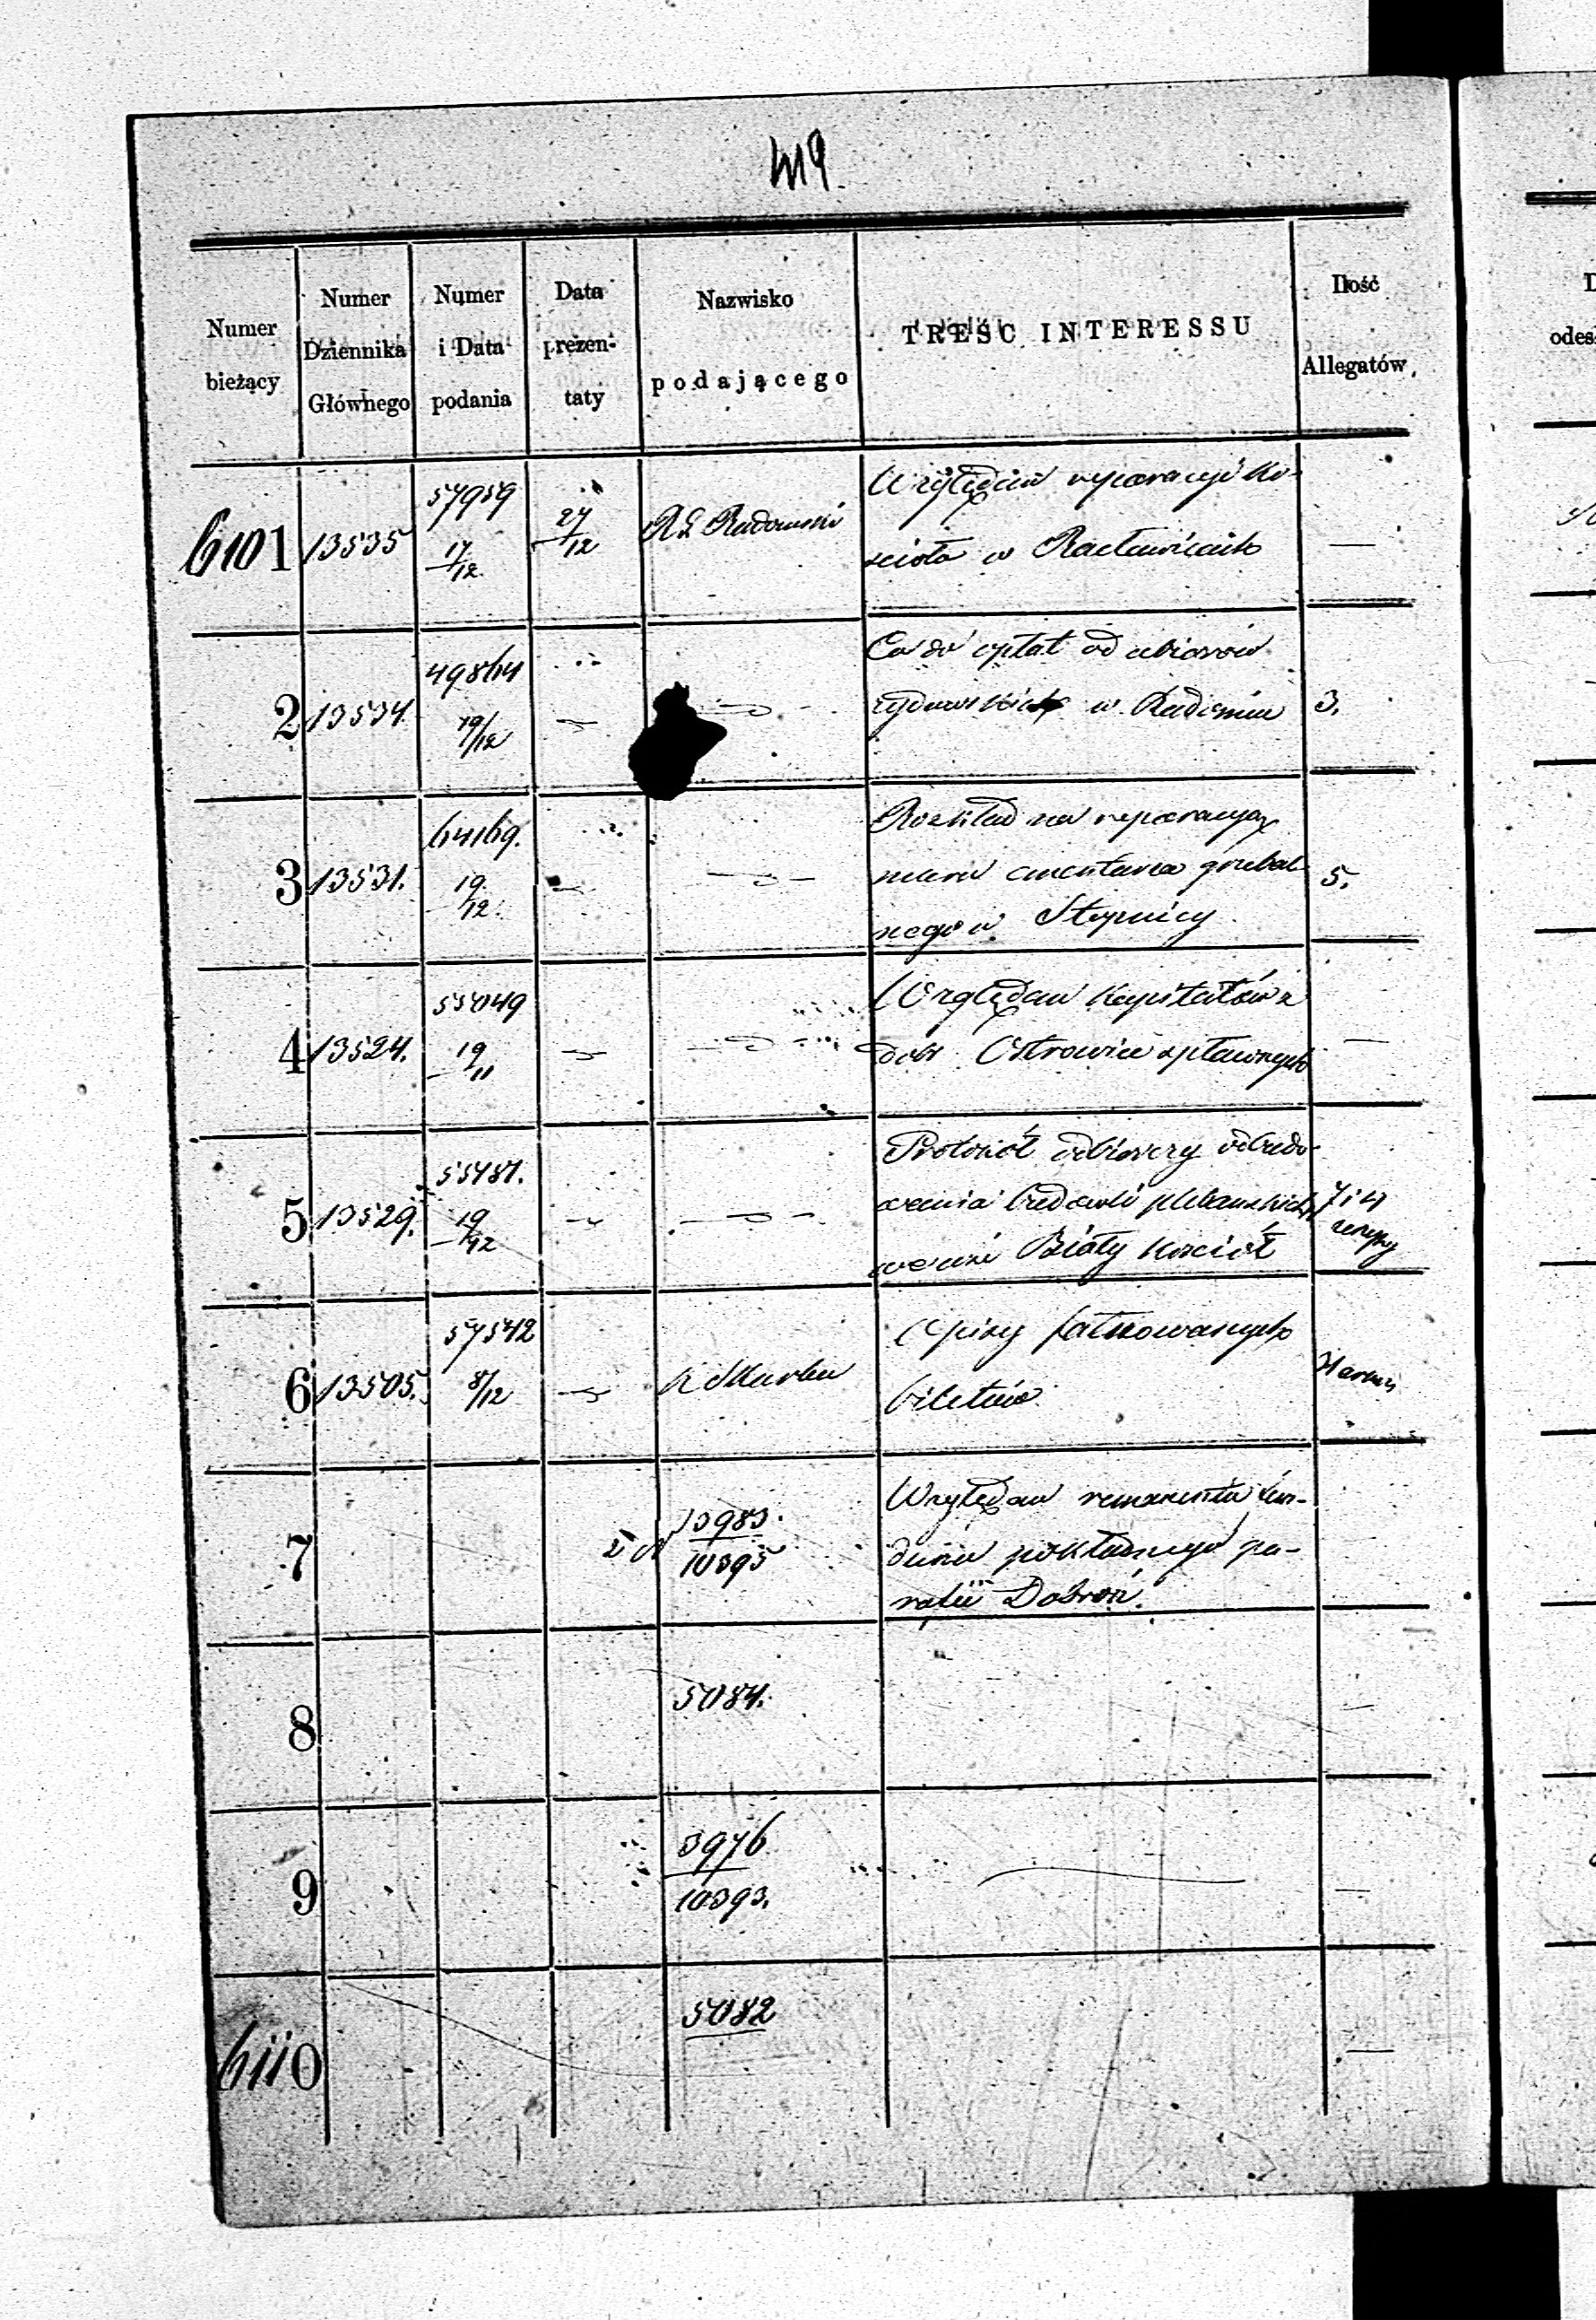 419
Numer bieżący
Numer Dziennika Głównego
Numer i Data podania
Data prezentaty
Nazwisko podającego
TREŚC INTERESSU
Ilość Allegatów
6101 13535 57959 17/12 27/12 RG Radomski
Względem reperacyi Ko-
scioła w Racławicach —
2 13534. 49864 19/12
Co do opłat od ubiorów
żydowskich w Radomiu 3.
3 13531. 64169. 19/12
Rozkład na reperacyą
muru cmentarza grzebal
nego w Stopnicy 5.
4 13524. 55049 19/11
Względem Kapitałów z
dóbr Ostrowice spławnych —
5 13529. 55487. 19/12
Protokół odbiorczy odbudo-
wania budowli plebanskich
we wsi Biały Kosciół 7 i 4
6 13505. 57542 8/12 K Skarbu
Opisy fałszowanych
biletów
7 13983. 10395
Względem remanentu fun-
duszu pokładnego pa-
rafii Dobroń.
8 5084. —
9 3976 10393. —
6110 5082 —
D
odes